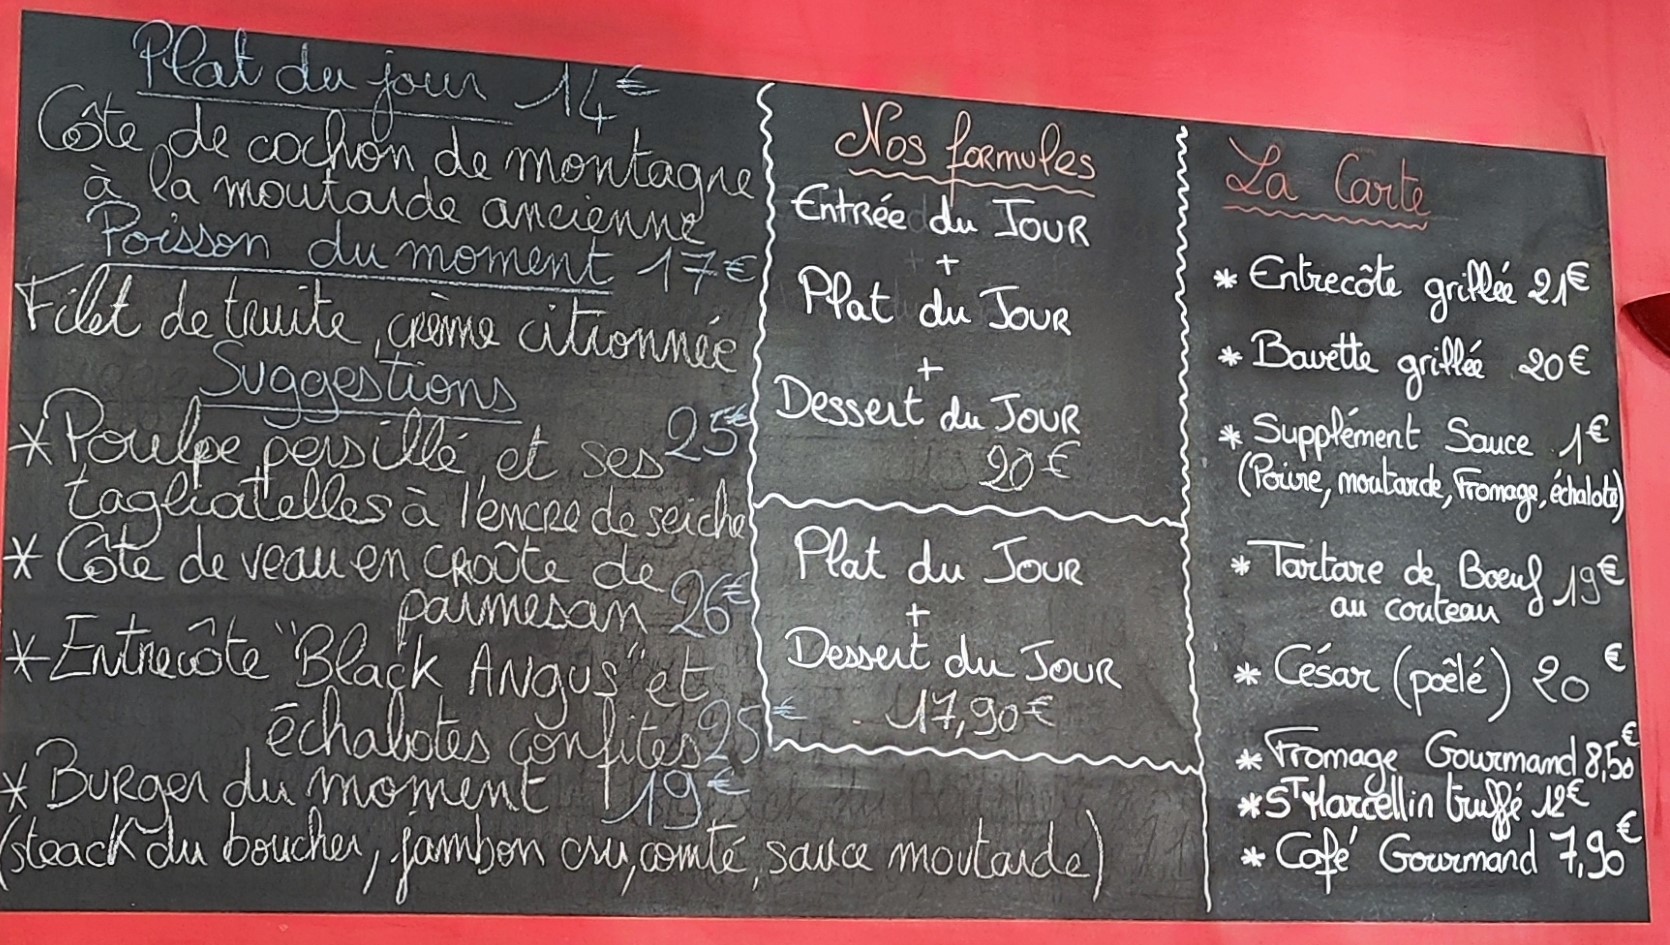 Plat du jour 14€
Côte de cochon de montagne
à la moutarde ancienne
Poisson du moment 17€
Filet de truite, crème citronnée
Suggestions
* Poulpe persillé et ses 25€
tagliatelles à l'encre de seiche
* Côte de veau en croûte de
parmesan 26€
* Entrecôte "Black Angus" et
échalotes confites 25€
* Burger du moment 19€
(steack du boucher, jambon cru, comté, sauce moutarde)
Nos formules
Entrée du Jour
+
Plat du Jour
+
Dessert du Jour
20€
Plat du Jour
+
Dessert du Jour
17,90€
La Carte
* Entrecôte grillée 21€
* Bavette grillée 20€
* Supplément Sauce 1€
(Poivre, moutarde, Fromage, échalote)
* Tartare de Boeuf 19€
au couteau
* César (poêlé) 20€
* Fromage Gourmand 8,50€
* St Marcellin truffé 12€
* Café Gourmand 7,90€